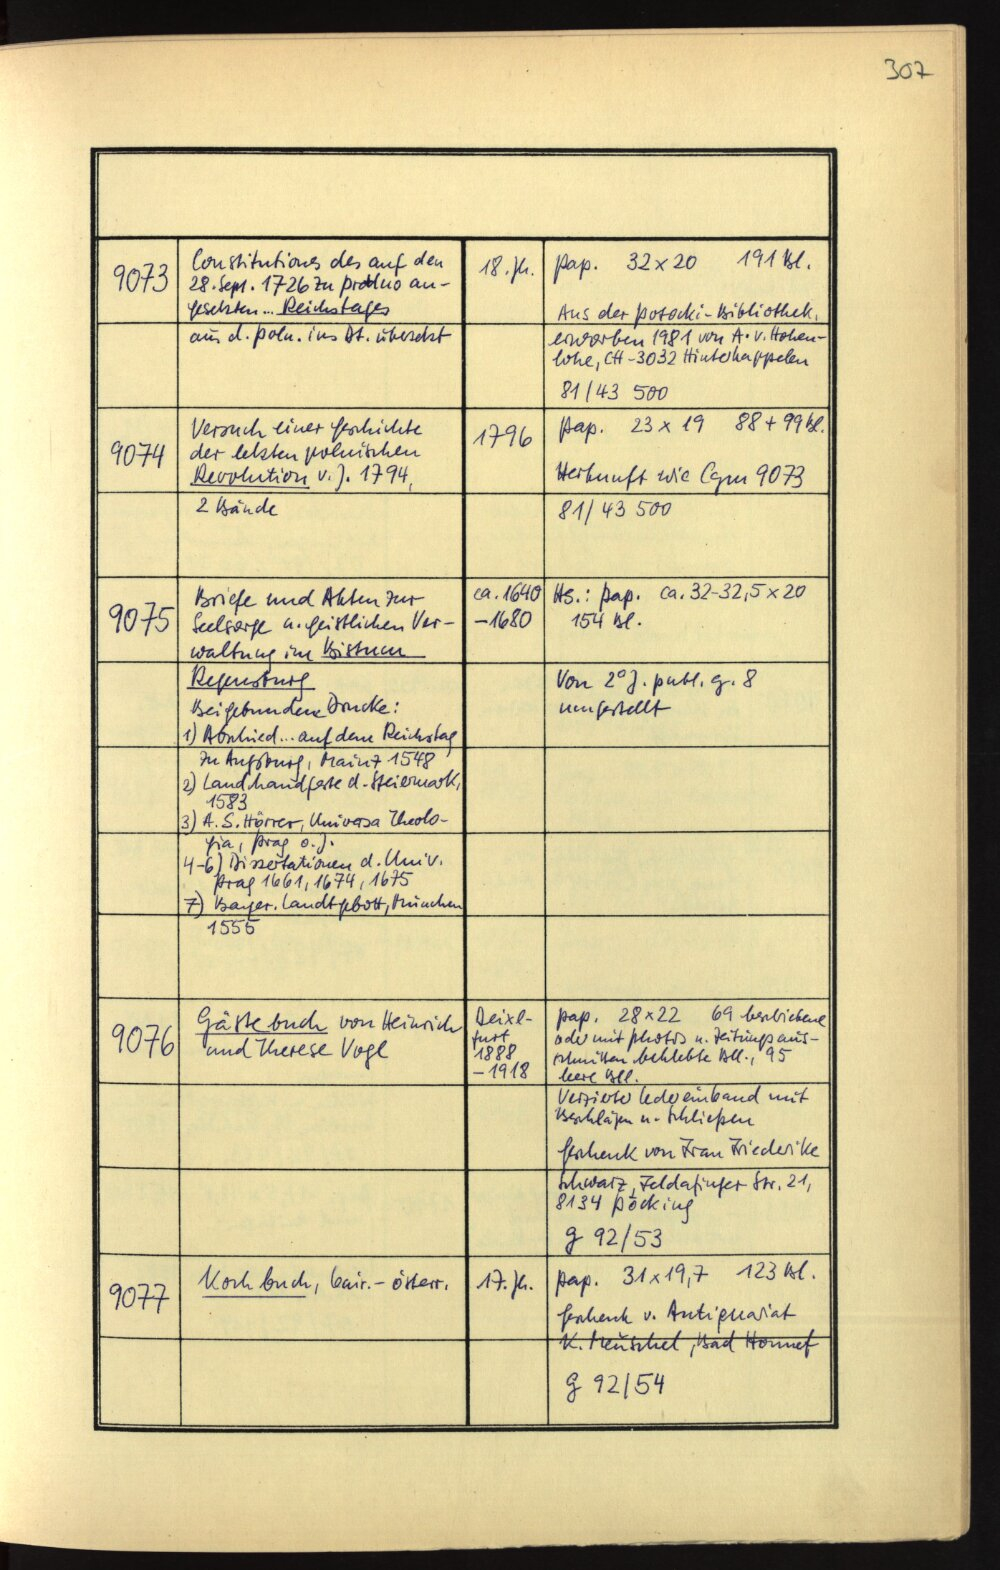 307
9073
Constitutiones des auf den
28. Sept. 1726 zu Grodno an-
gesetzten... Reichstages
aus d. poln. ins Dt. übersetzt
18. Jh.
Pap. 32 x 20 191 Bl.
Aus der Potocki-Bibliothek,
erworben 1981 von A. v. Hohen-
lohe, CH-3032 Hinterkappelen
81/43 500
9074
Versuch einer Geschichte
der letzten polnischen
Revolution v. J. 1794,
2 Bände
1796
Pap. 23 x 19 88 + 99 Bl.
Herkunft wie Cgm 9073
81/43 500
9075
Briefe und Akten zur
Seelsorge u. geistlichen Ver-
waltung im Bistum
Regensburg
Beigebundene Drucke:
1) Abschied... auf dem Reichstag
zu Augsburg, Mainz 1548
2) Landhandfeste d. Steiermark,
1583
3) A. S. Hörrer, Universa Theolo-
gia, Prag o. J.
4-6) Dissertationen d. Univ.
Prag 1661, 1674, 1675
7) Bayer. Landtgebott, München
1555
ca. 1640
- 1680
Hs.: Pap. ca. 32-32,5 x 20
154 Bl.
Von 2° J. publ. g. 8
umgestellt
9076
Gästebuch von Heinrich
und Therese Vogl
Deixl-
furt
1888
- 1918
Pap. 28 x 22 69 beschriebene
oder mit Photos u. Zeitungsaus-
schnitten beklebte Bll., 95
leere Bll.
Verzierter Ledereinband mit
Beschlägen u. Schließen
Geschenk von Frau Friederike
Schwarz, Feldafinger Str. 21,
8134 Pöcking
g 92/53
9077
Kochbuch, bair.-österr.
17. Jh.
Pap. 31 x 19,7 123 Bl.
Geschenk v. Antiquariat
K. Meuschel, Bad Honnef
g 92/54